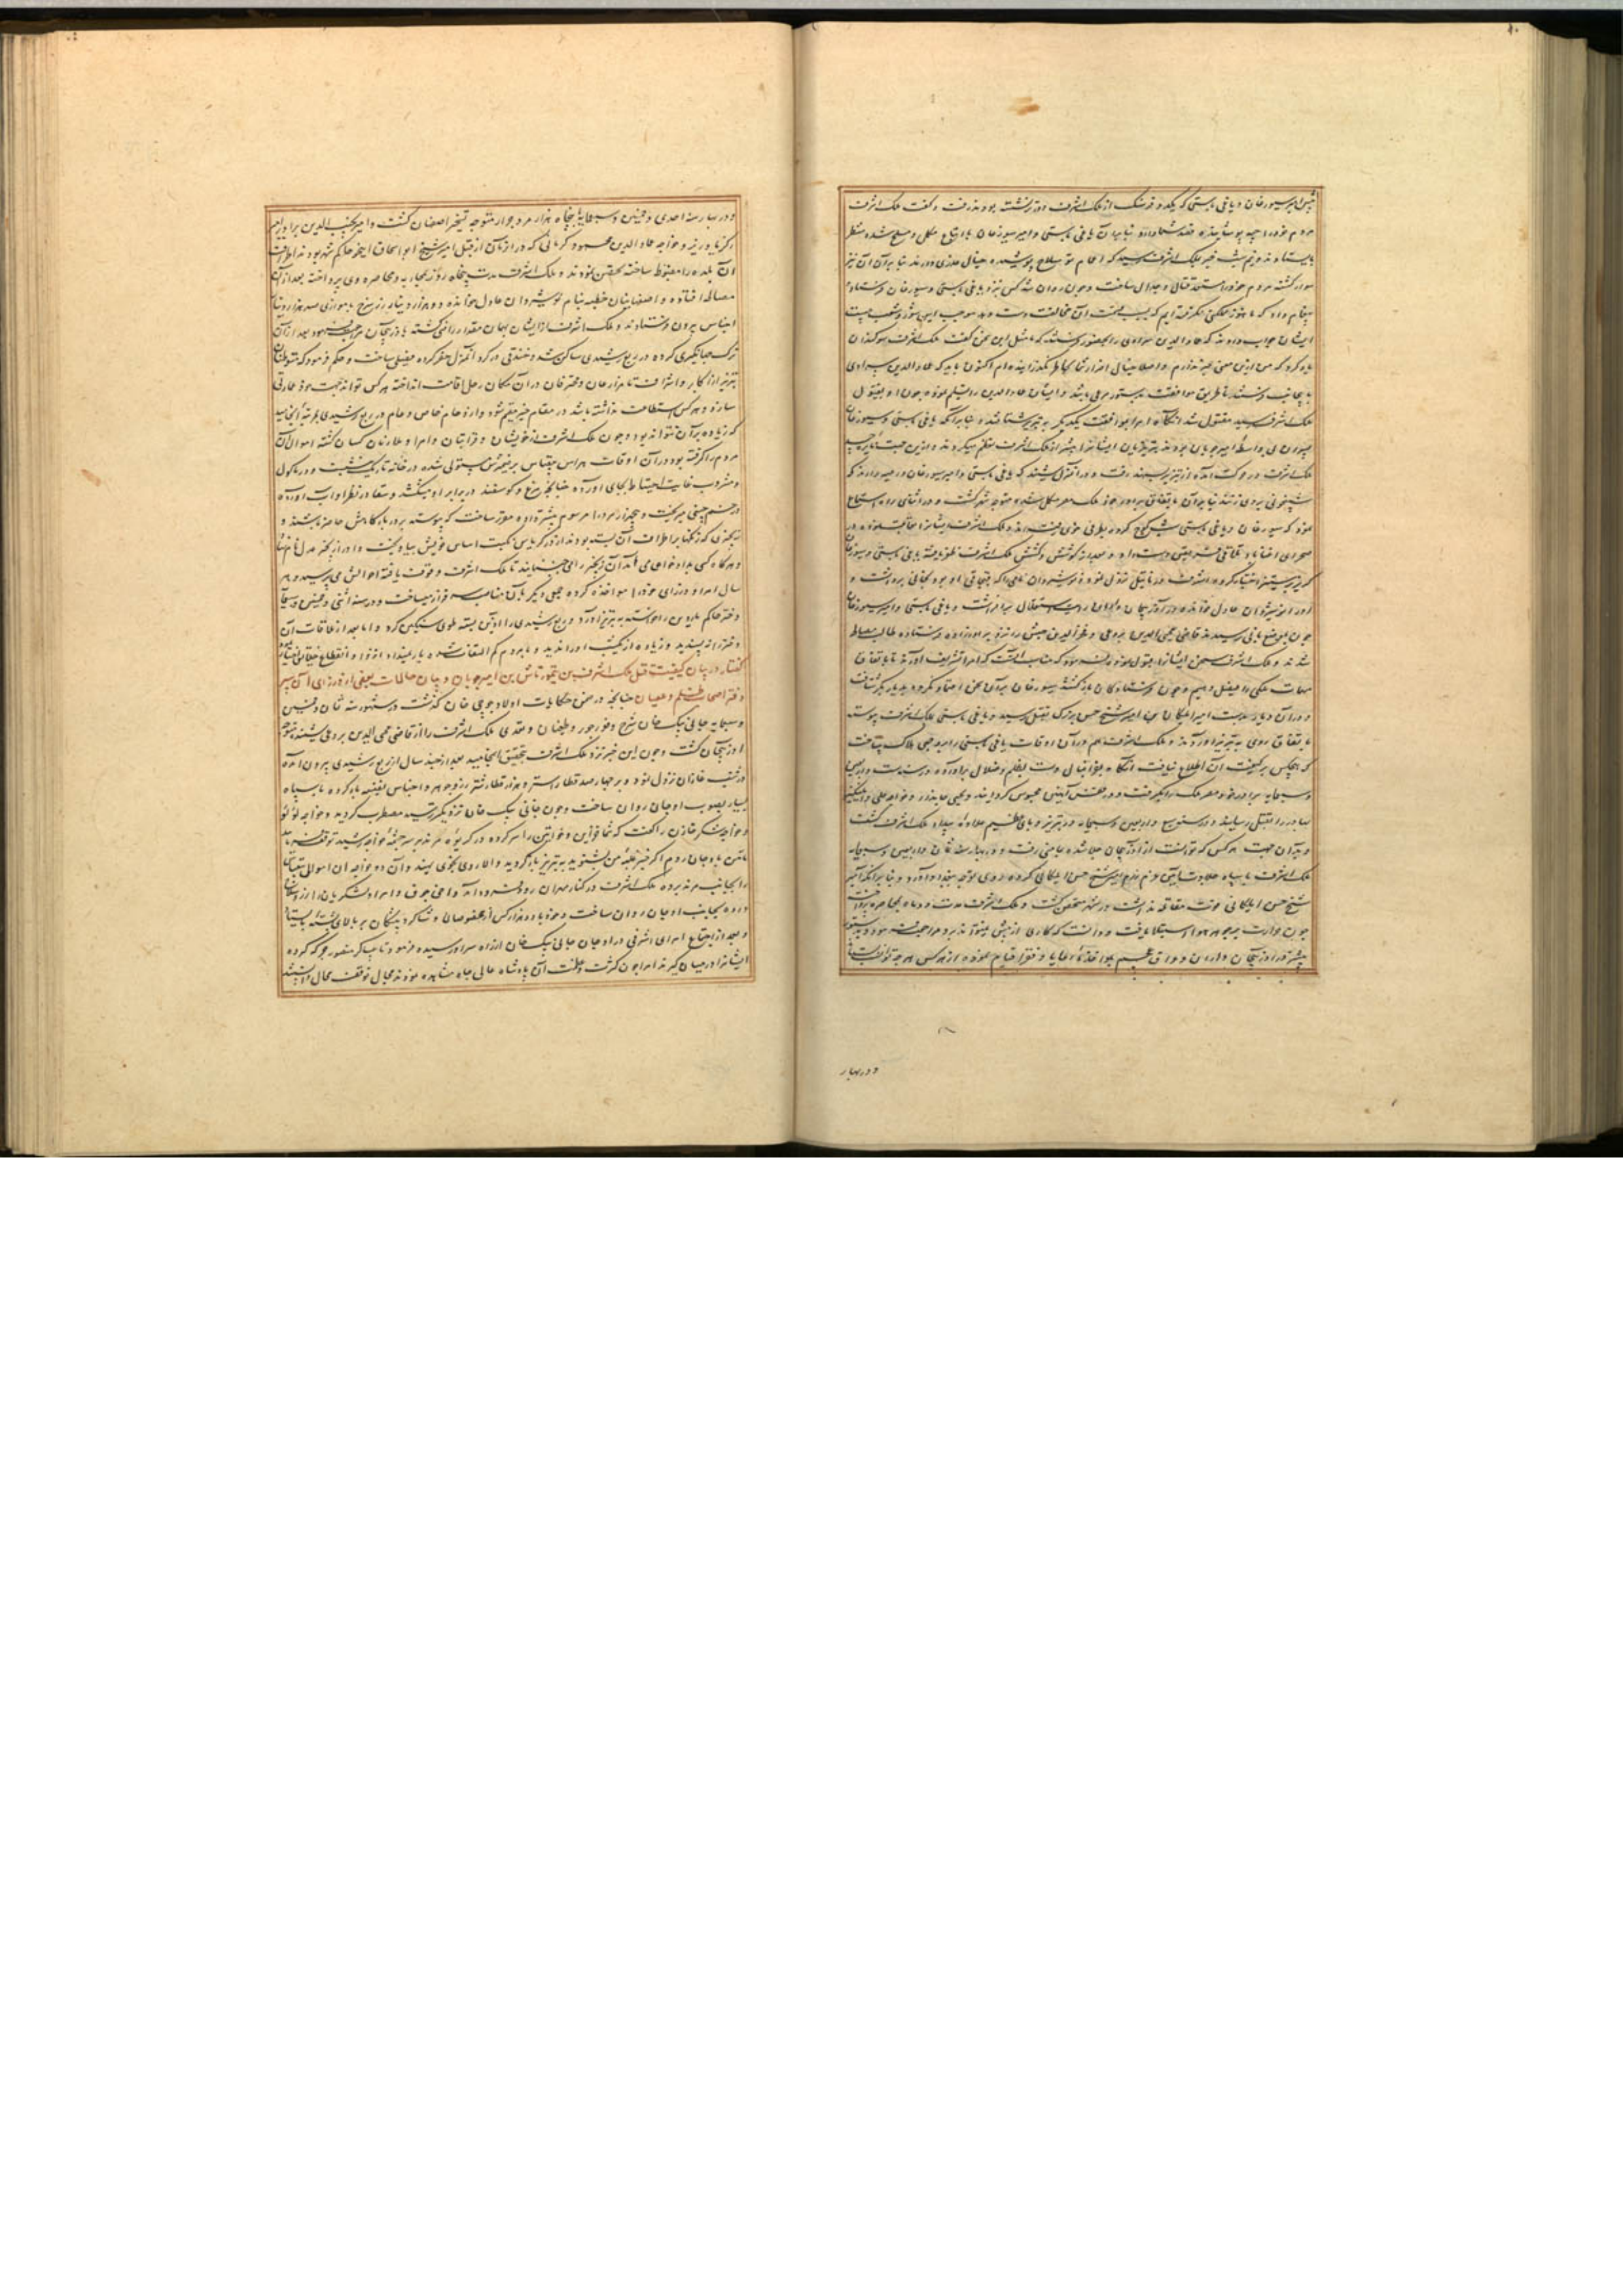 پیش امیر سیورغان و یاغی باستی که یکدو فرسنگ از ملک اشرف دورتر نشسته بودند رفت و گفت ملک اشرف
مردم خود را جبه پوشانیده قصد شما دارد بنابرآن یاغی باستی و امیر سیورغان با اتباع مکمل و مسلح شده منتظر
بایستادند و نیم شب خبر بملک اشرف رسید که اعمام تو سلاح پوشیده خیال غدری دارند بنابرآن او نیز
سوار گشته مردم خود را مستعد قتال و جدال ساخت و چون روان شد کس نزد یاغی باستی و سیورغان فرستاده
پیغام داد که ما هنوز مملکتی نگرفته ایم که بسبب آن مخالفت دست دهد موجب این شور و شغب چیست
ایشان جواب دادند که عماد الدین سراوی را بحضور فرستد که مثل این سخن گفت ملک اشرف سوگندان
یاد کرد که من ازین معنی خبر ندارم و اصلا خیال اضرار شما بخاطر نگذرانیده ام اکنون باید که عماد الدین سراوی
بدینجانب فرستند تا طریق موافقت بدستور مرعی باشد و ایشان عماد الدین را تسلیم نموده چون او بفتوی
ملک اشرف رسید مقتول شد آنگاه امرا بموافقت یکدیگر به تبریز شتافتند و بنابرآنکه یاغی باستی و سیورغان
پسران بی واسطه امیر چوپان بودند تبریزیان ایشانرا بیشتر از ملک اشرف تعظیم میکردند و ازین جهت نایره حسد
ملک اشرف در حرکت آمده از تبریز بیرون رفت و در آنمنزل شنید که یاغی باستی و امیر سیورغان در مید دارند که
شبیخونی بروی زنند بنابرآن باتفاق برادر خود ملک مصر مکمل شده متوجه شهر گشت و در اثنای راه استماع
نمود که سیورغان و یاغی باستی شب کوچ کرده بطرف خوی رفته اند و ملک اشرف ایشانرا تعاقب نموده در
صحرای اغناباد تلاقی فریقین دست داد و بعد از کوشش و کشش ملک اشرف ظفر یافته یاغی باستی و سیورغان
گریز بر ستیز اختیار کردند و ملک اشرف در تبریز نزول نموده نوشیروان نامی را که قبچاقی او بود بخانی برداشت و
او را نوشیروان عادل خوانده در آذربیجان و اران رایت استقلال برافراشت و یاغی باستی و امیر سیورغان
چون بموضع یاغی رسیدند قاضی محیی الدین بردعی و فخر الدین حبش را نزد برادرزاده فرستاده طالب مصالحه
شدند و ملک اشرف سخن ایشانرا قبول نموده فرمود که مناسب آنست که امرا تشریف آورند تا باتفاق
مهمات ملکی را فیصل دهیم و چون فرستادگان بازگشتند سیورغان بر آن سخن اعتماد نکرد و بدیار بکر شتافت
و در آن دیار بدست امیر ایلکان بن امیر شیخ حسن بزرگ بقتل رسید و یاغی باستی بملک اشرف پیوست
باتفاق روی به تبریز آوردند و ملک اشرف هم در آن اوقات یاغی باستی را بر وجهی هلاک ساخت
که هیچکس بر کیفیت آن اطلاع نیافت آنگاه بفراغ بال دست بظلم و ضلال برآورد و در سنه ست و اربعین
و سبعمایه برادر خود مصر ملک را بگرفت و در قفس آهنین محبوس گردانید و یحیی جاندار و خواجه علی
بهادر را بقتل رسانید و در سنه سبع و اربعین و سبعمایه در تبریز وبای عظیم علاوه بیداد ملک اشرف گشت
و بدآن جهت هر کس که توانست از آذربیجان جلا شده بجائی رفت و در بهار سنه ثمان و اربعین و سبعمایه
ملک اشرف با سپاه جلادت آیین عزم رزم امیر شیخ حسن ایلکانی کرده روی توجه ببغداد آورد و بنابرآنکه امیر
شیخ حسن ایلکانی قوت مقاتله نداشت در شهر متحصن گشت و ملک اشرف مدت دو ماه بمحاصره پرداخت
چون حرارت بر جوهر هوا استیلا یافت و دانست که کاری از پیش نمیتواند برد مراجعت نمود و بدستور
پیشتر در آذربیجان و اران و عراق عجم بمواخذه رعایا و فقرا قیام نموده از هر کس هر چه توانست بستاند
و در بهار
و در بهار سنه احدی و خمسین و سبعمایه با پنجاه هزار مرد جرار متوجه تسخیر اصفهان گشت و امیر نجیب الدین برادر امیر
زکریا وزیر و خواجه عماد الدین محمود کرمانی که در آن زمان از قبل امیر شیخ ابو اسحاق اینجو حاکم شهر بودند اطراف
آن بلده را مضبوط ساخته تحصن نمودند و ملک اشرف مدت پنجاه روز بمحاربه و محاصره وی پرداخته بعد از آن
مصالحه افتاده و اصفهانیان خطبه بنام نوشیروان عادل خوانده دو هزار دینار زر سرخ با موازی صد هزار دینار
اجناس بیرون فرستادند و ملک اشرف از ایشان بهمان مقدار راضی گشته باذربیجان مراجعت نمود بعد از آن
ترک جهانگیری کرده در ربع رشیدی ساکن شد و خندقی در گرد آنمنزل حفر کرده فصیلی ساخت و حکم فرمود که متوطنان
تبریز از اکابر و اشراف تا مزارعان و محترفان در آن مکان رحل اقامت انداخته هر کس تواند جهت خود عمارتی
سازد و هر کس استطاعت نداشته باشد در مقام خیمه مقیم شود و ازدحام خاص و عام در ربع رشیدی بمرتبه انجامید
که زیاده بر آن نتواند بود و چون ملک اشرف از خویشان و قرابتان و امرا و ملازمان کسان کشته اموال آن
مردم را گرفته بود در آن اوقات هراس بیقیاس بر ضمیرش مستولی شده در خانه تاریک می نشست و در ماکول
و مشروب غایت احتیاط بجای آورده چنانچه مرغ و گوسفند در برابر او میکشتند و سقا در نظر او آب آورده
در خم چینی میریخت و چند هزار مرد را مرسوم پیشتر داده مقرر ساخت که پیوسته بر در بارگاهش حاضر باشند و
زنجیری که زنگها بر اطراف آن بسته بودند از در گریاس نکبت اساس خویش بیاویخت و او را زنجیر عدل نام نهاد
و هرگاه کسی بدادخواهی می آمد آن زنجیر را می جنبانید تا ملک اشرف وقوف یافته احوالش می پرسید و هر
سال امرا و وزرای خود را مواخذه کرده جمعی دیگر بآن مناصب سرافراز میساخت و در سنه اثنی و خمسین و سبعمایه
دختر حاکم ماردین را خواسته به تبریز آورد و ربع رشیدی را آذین بسته طوی سنگین کرد و اما بعد از ملاقات آن
دختر را نپسندید و زیاده از یکشب او را ندید و با مردم کم التفات شده
گفتار در بیان کیفیت قتل ملک اشرف بن تیمورتاش بن امیر چوبان و بیان حالات بعضی از وزرای آن سر
دفتر اصحاب ظلم و عصیان چنانچه در ضمن حکایات اولاد جوجی خان گذشت در شهور سنه ثمان و خمسین
و سبعمایه جانی بیک خان شرح وفور جور و طغیان و تعدی ملک اشرف را از قاضی محیی الدین بردعی شنیده متوجه
آذربیجان گشت و چون این خبر نزد ملک اشرف بتحقیق انجامید بعد از چند سال از ربع رشیدی بیرون آمده
در شنب غازان نزول نمود و بر چهار صد قطار استر و هزار قطار شتر زر و جواهر و اجناس نفیسه بار کرده با سپاه
بسیار بصوب اوجان روان ساخت و چون جانی بیک خان نزدیکتر رسید مضطرب گردید و خواجه لولو
و خواجه شکر خازن را گفت که شما خزاین و خواتین را سر کرده در گریوه مرند بر سر چشمه خواجه رشید توقف نمایید
تا من باوجان روم اگر خبر غلبه من بشنوید به تبریز بازگردید و الا روی بخوی نهید و آن دو خواجه آن اموال بیقیاس
را بجانب مرند برده ملک اشرف در کنار مهران رود فرود آمد و اخی جوق و امرا و لشکریان را از
روده بجانب اوجان روان ساخت و خود با دو هزار کس از مخصوصان و شاگرد پیشگان بر بالای پشته بایستاد
و بعد از اجتماع امرای اشرفی در اوجان جانی بیک خان از راه سراو رسیده فرمود تا عساکر منصور جرگه کرده
ایشانرا در میان گیرند امرا چون کثرت و عظمت آن پادشاه عالی جاه مشاهده نمودند مجال توقف محال دانستند